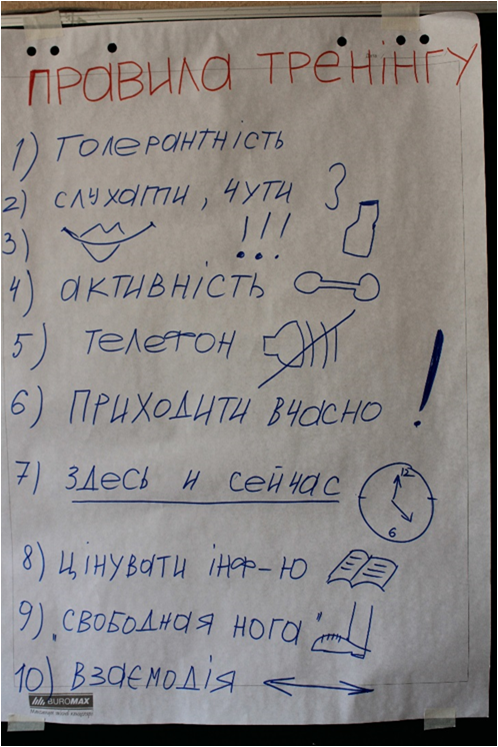 ПРАВИЛА ТРЕНІНГУ
1) ТОЛЕРАНТНІСТЬ
2) СЛУХАТИ, ЧУТИ
3) !!!
4) АКТИВНІСТЬ
5) ТЕЛЕФОН
6) ПРИХОДИТИ ВЧАСНО !
7) ЗДЕСЬ И СЕЙЧАС
12
6
8) ЦІНУВАТИ ІНФ-Ю
9) „СВОБОДНАЯ НОГА"
10) ВЗАЄМОДІЯ
BUROMAX